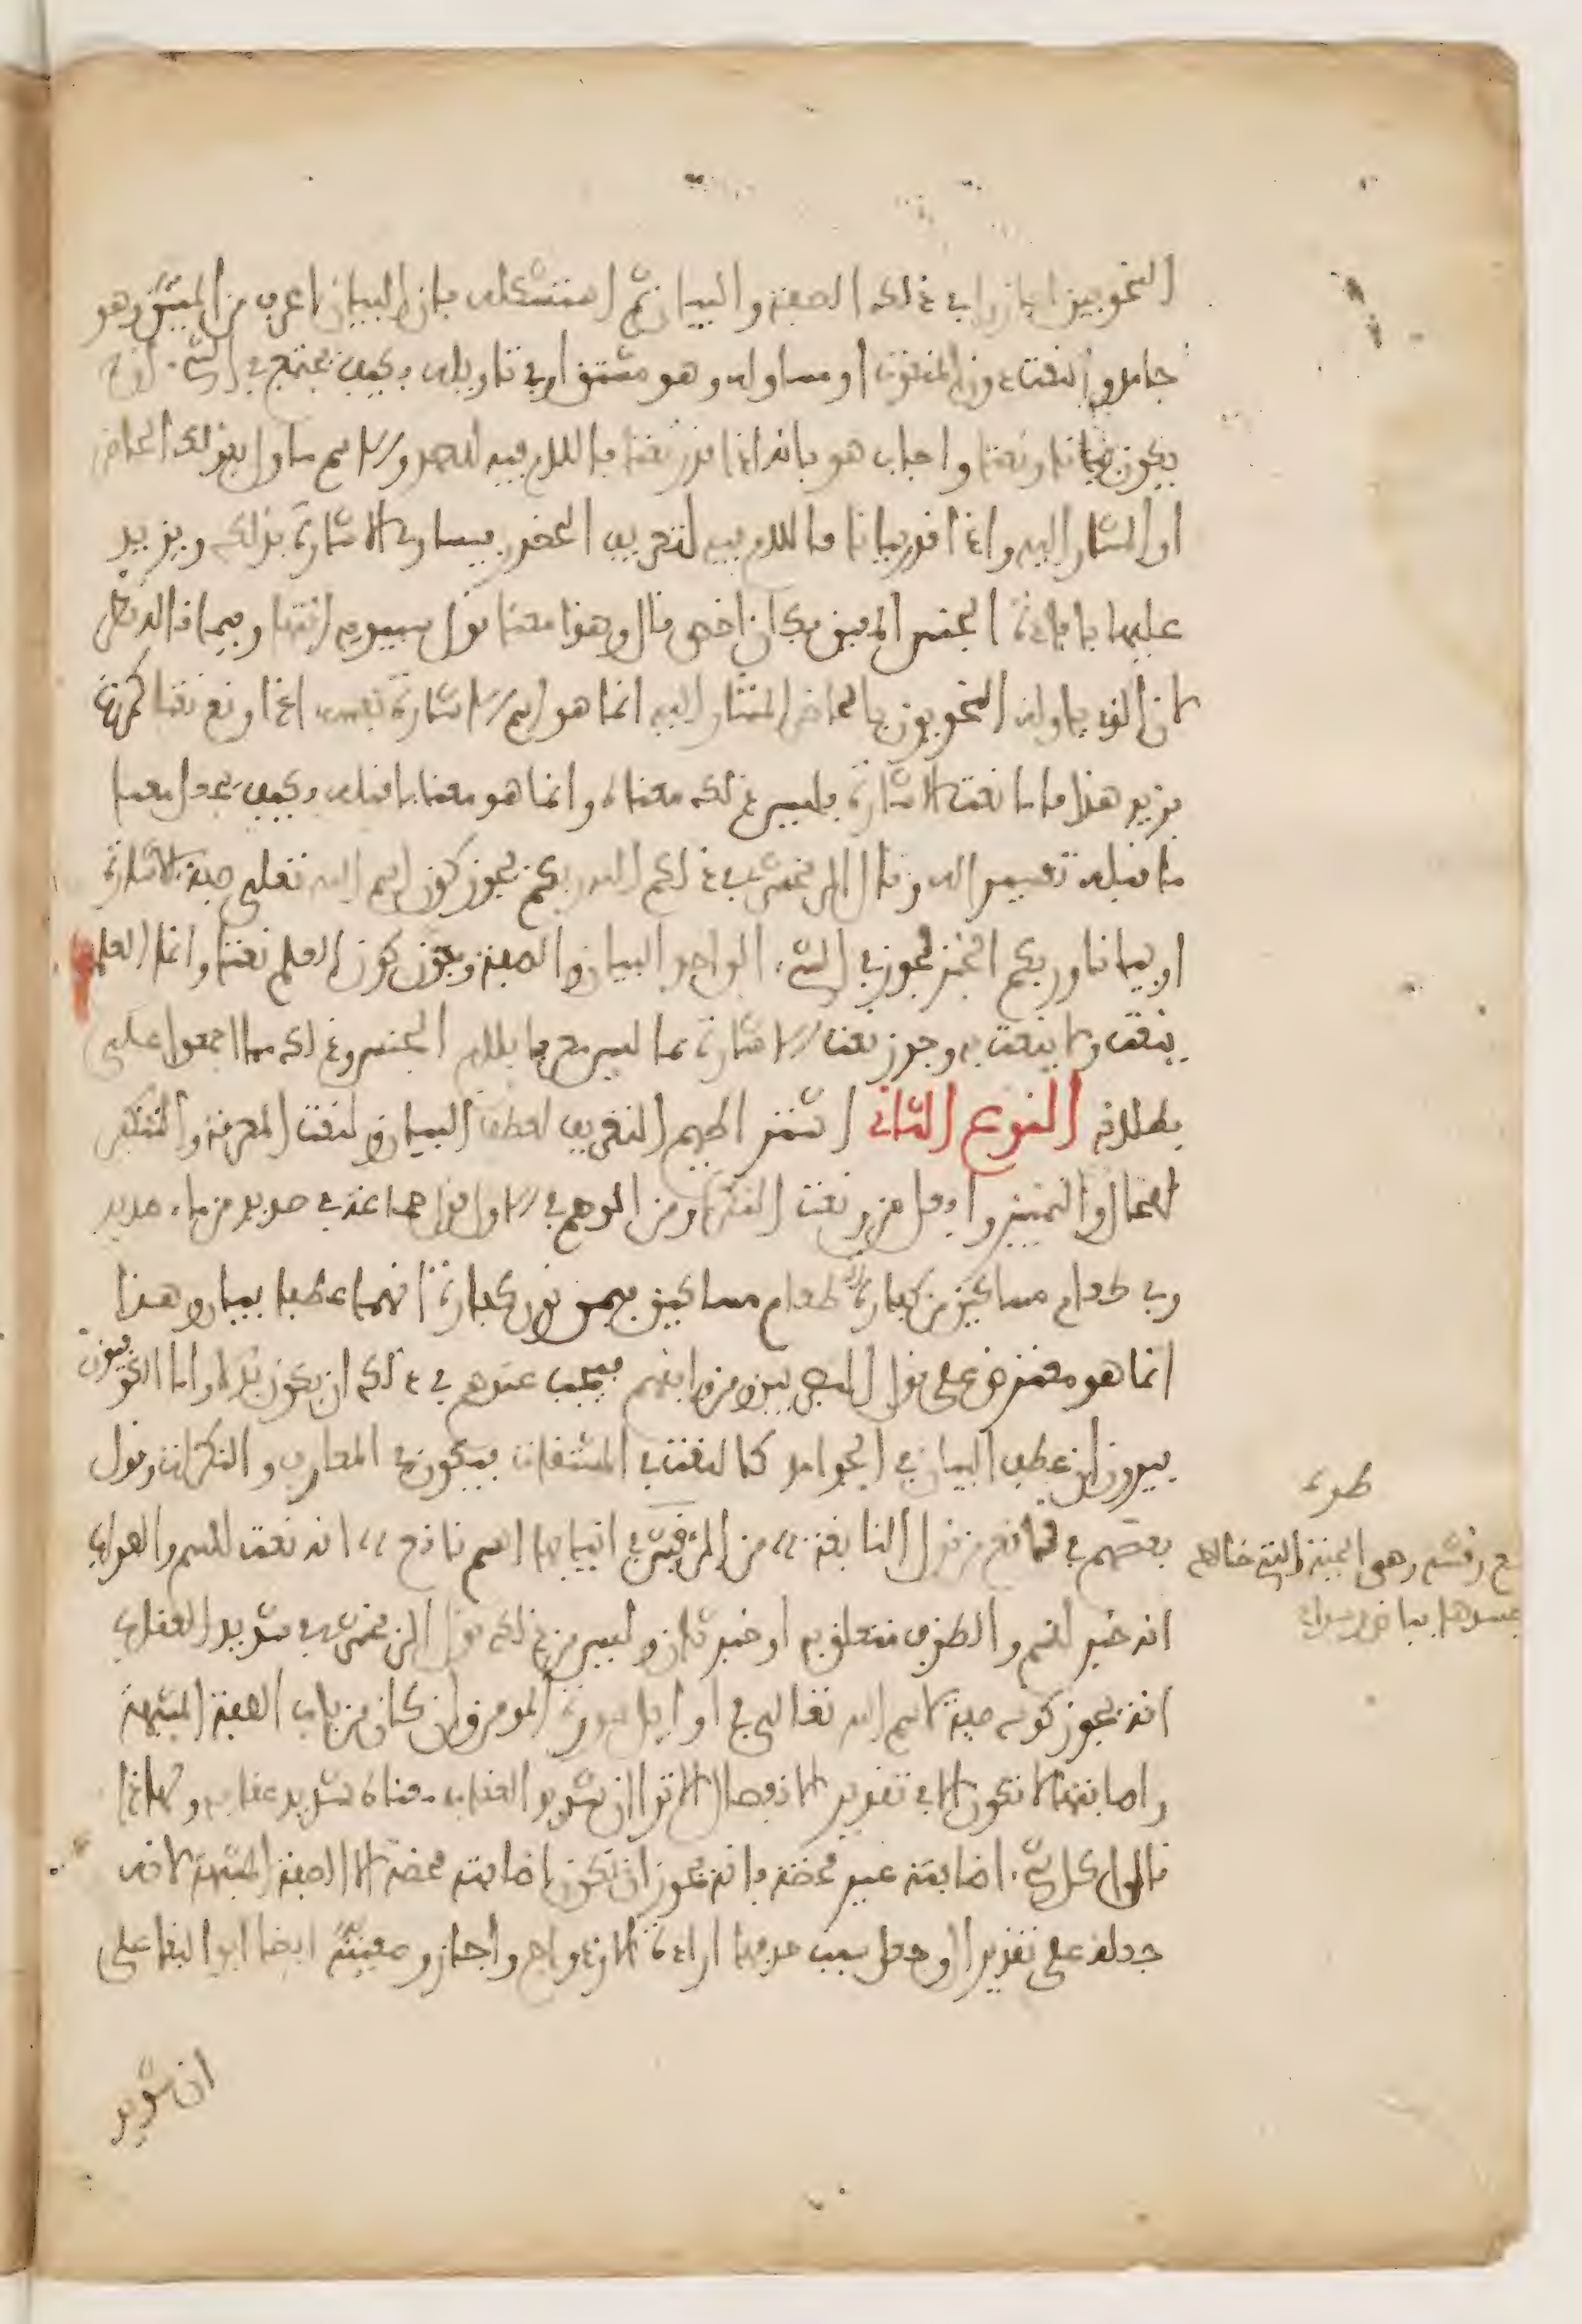 النحويين اجازوا في ذلك الصفة والبيان ثم استشكله بان البيان اعرف من المبين وهو
جامد والنعت دون المنعوت او مساو له وهو مشتق او في تاويله فكيف يجتمع في الشيء ان
يكون بيانا ونعتا واجاب هو بانه اذا قدر نعتا فاللام فيه للعهد والاسم ماول بقولك الحاضر
او المشار اليه واذا قدر بيانا فاللام فيه لتعريف الحضور فيساوي الاشارة بذلك ويزيد
عليها بافادة الجنس المعين فكان اخص قال وهذا معنا قول سيبويه انتها وفيما قاله نظر
لان الذي ياوله النحويون بالحاضر المشار اليه انما هو اسم الاشارة نفسه اذا وقع نعتا كمررت
بزيد هذا فاما نعت الاشارة فليس ذلك معناه وانما هو معنا ما قبله فكيف يجعل معنا
ما قبله تفسيرا له وقال الزمخشري في ذلكم الله ربكم يجوز كون اسم الله تعلى صفة للاشارة
او بيانا وربكم الخبر فجوز في الشيء الواحد البيان والصفة وجوز كون العلم نعتا وانما العلم
ينعت ولا ينعت به وجوز نعت الاشارة بما ليس معرفا بلام الجنس وذلك مما اجمعوا على
بطلانه النوع الثاني اشتراطهم التعريف لعطف البيان ولنعت المعرفة والتنكير
للحال والتمييز وافعل من ونعت النكرة ومن الوهم في الاول قول جماعة في صديد من ماء صديد
وفي طعام مساكين من كفارة طعام مساكين فيمن نون كفارة انهما عطفا بيان وهذا
انما هو معترض على قول البصريين ومن وافقهم فيجب عندهم في ذلك ان يكون بدلا واما الكوفيون
فيرون ان عطف البيان في الجوامد كالنعت في المشتقات فيكون في المعارف والنكرات وقول
بعضهم في ناقع من قول النابغة من الرقش في انيابها السم ناقع انه نعت للسم والصواب
انه خبر للسم والظرف متعلق به او خبر ثان وليس من ذلك قول الزمخشري في شديد العقاب
انه يجوز كونه صفة لاسم الله تعالى في اوايل سورة المومن وان كان من باب الصفة المشبهة
واضافتها لا تكون الا في تقدير الانفصال الا ترا ان شديد العقاب معناه شديد عقابه ولهذا
قالوا كل شيء اضافته غير محضة فانه يجوز ان تكون اضافته محضة الا الصفة المشبهة لانه
جعله على تقدير ال وجعل سبب حذفها ارادة الازدواج واجاز وصفيته ايضا ابو البقا على
ان شديد
طرة
رقشى وهي الحية التي خالط
جسدها بياض وسواد